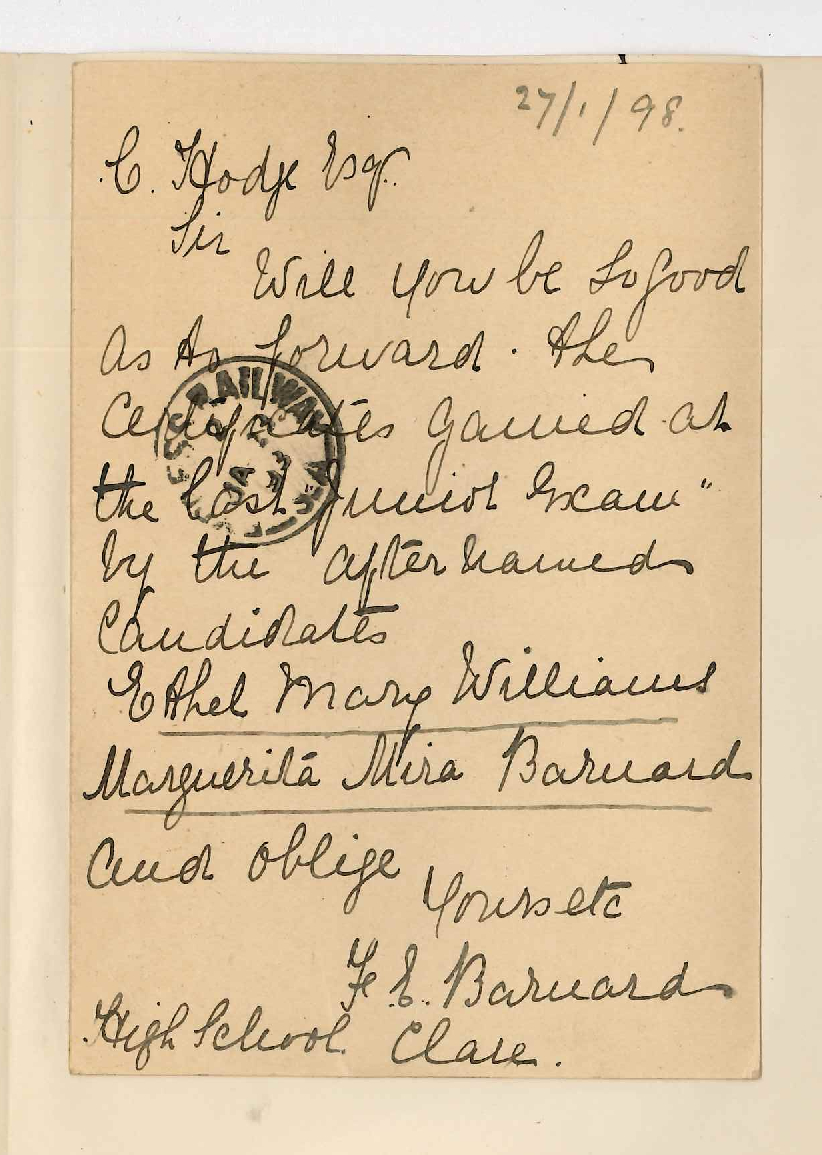 27/1/98.
C. Hodge Esqr.
Sir
Will you be so good
as to forward the
Certificates gained at
the last Junior Exam"
by the after named
Candidates
Ethel Mary Williams
Marguerita Mira Barnard
and oblige
Yours etc
F. E. Barnard
High School Clare.
RAILWAY
JA